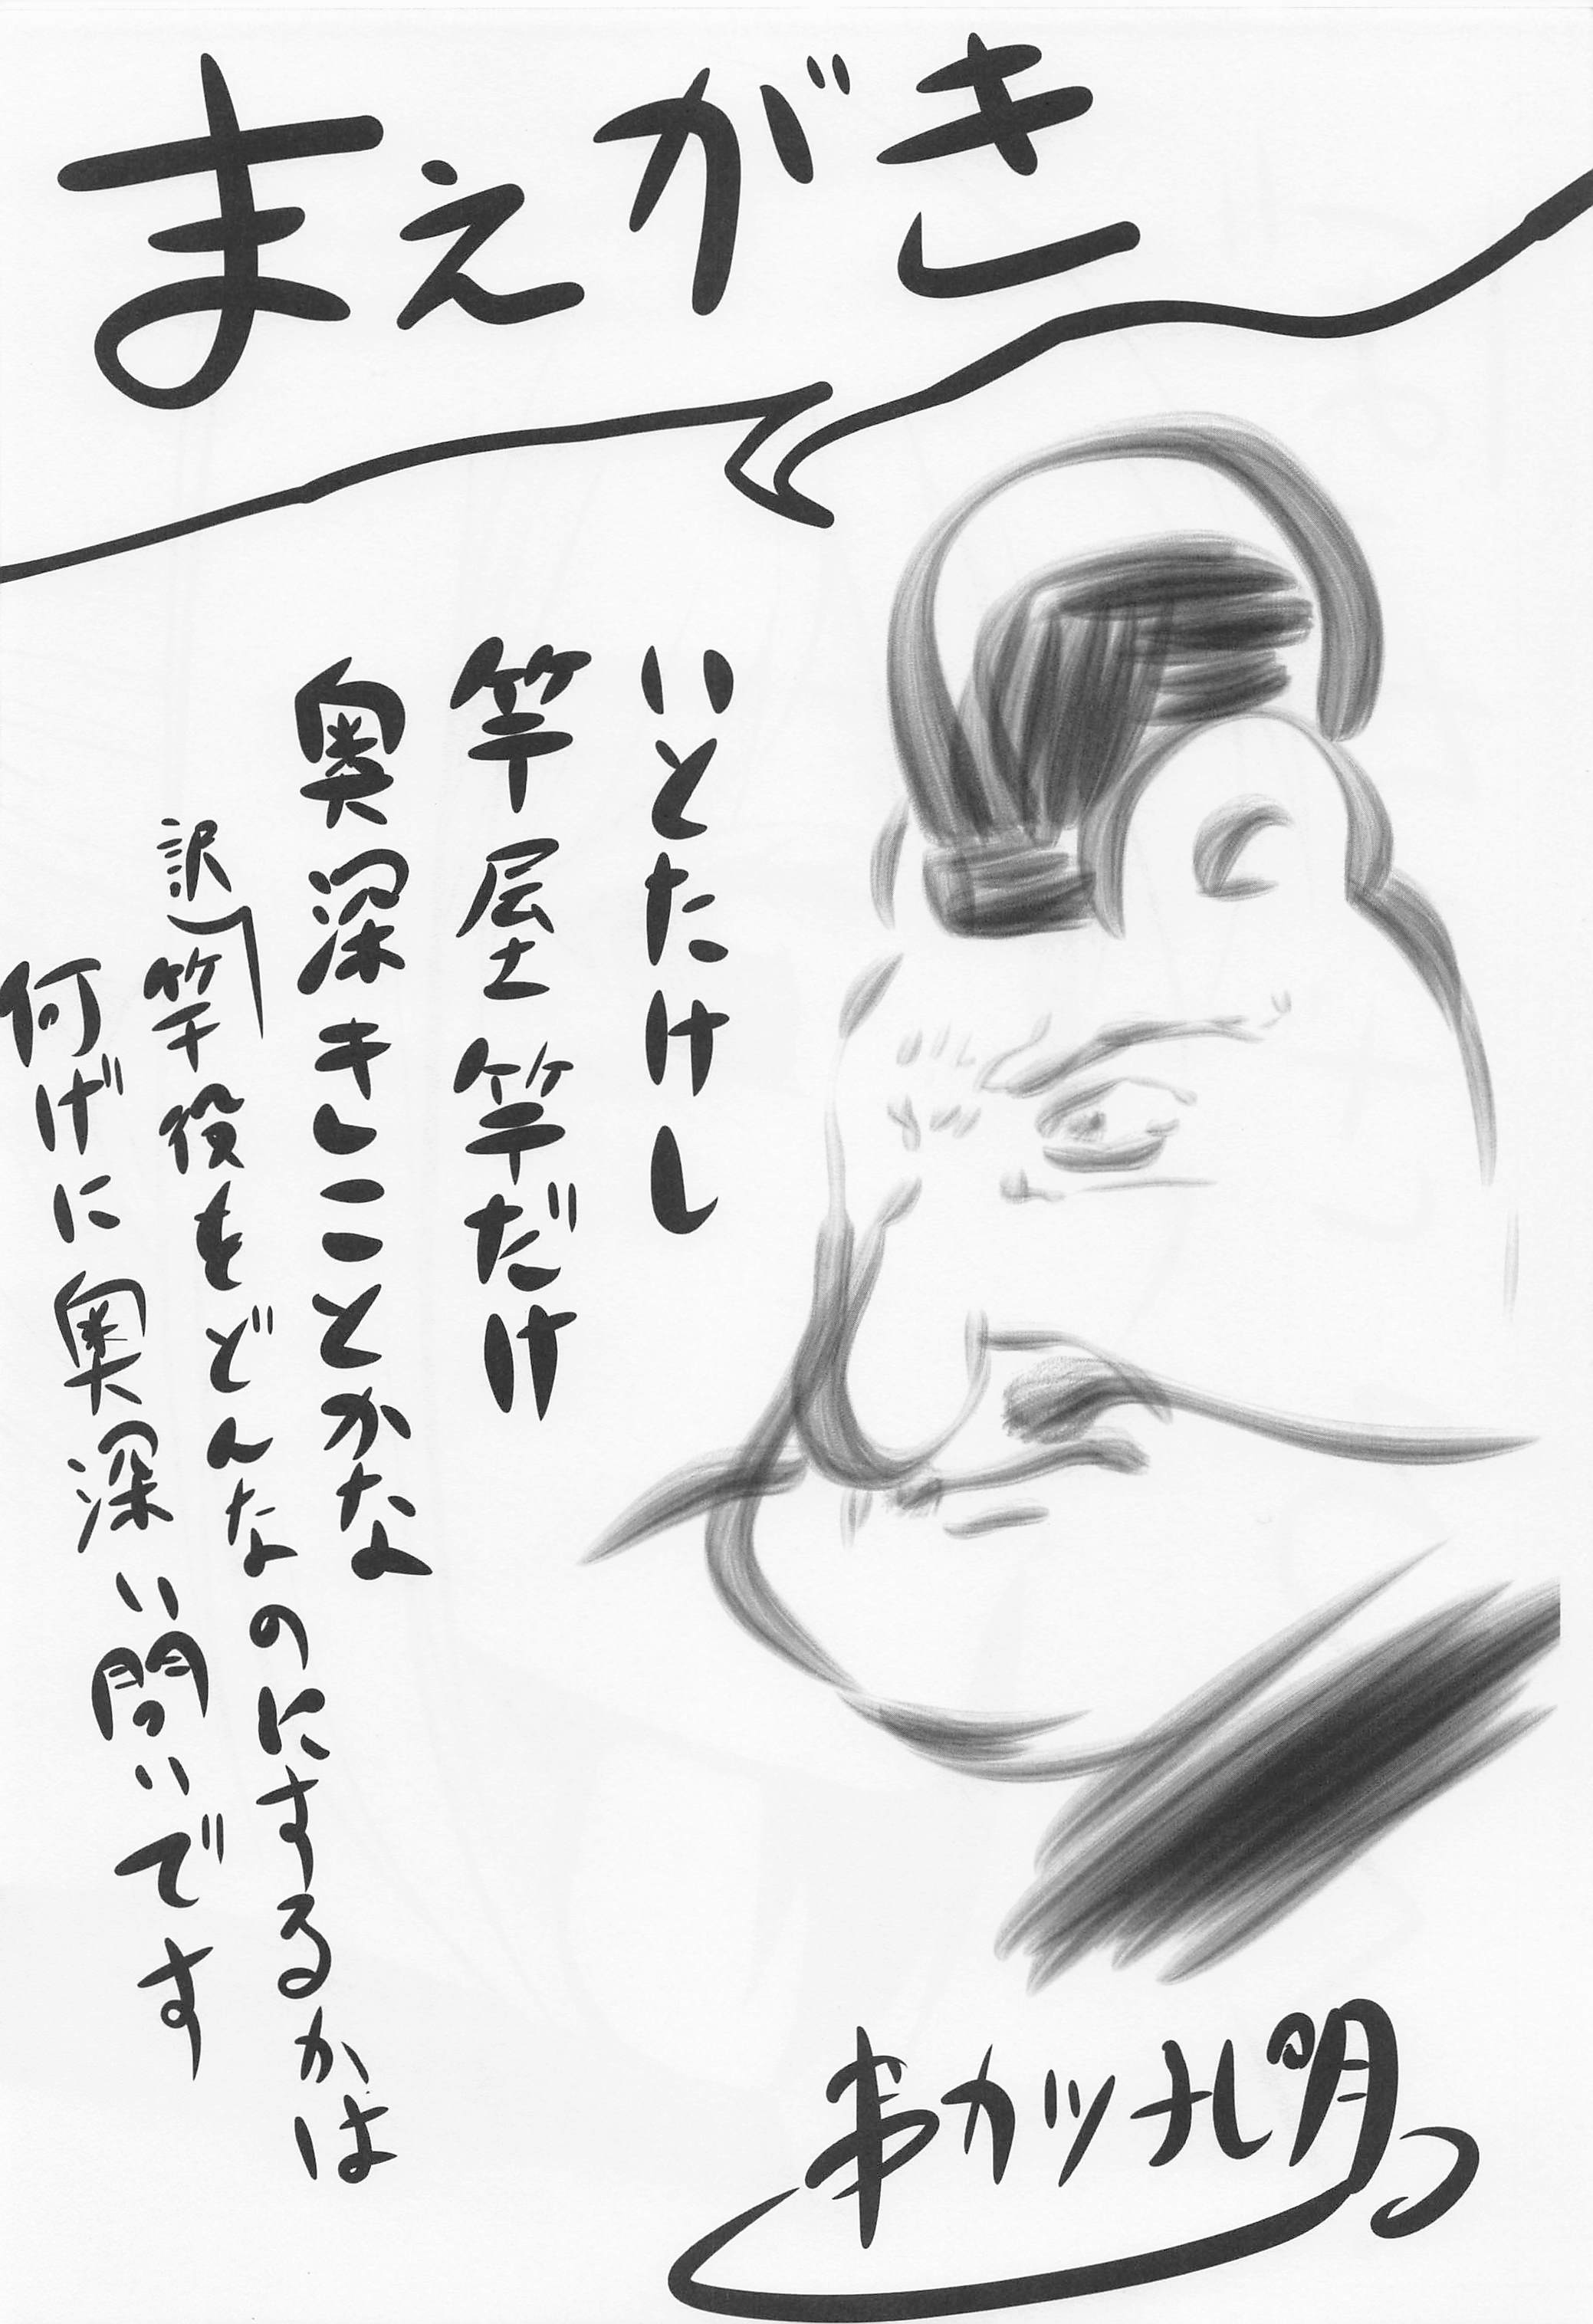 まえがき
いとたけし
竿屋竿だけ
奥深きしことかな
訳 竿役をどんなのにするかは
何げに奥深い問いです
串カツ孔明